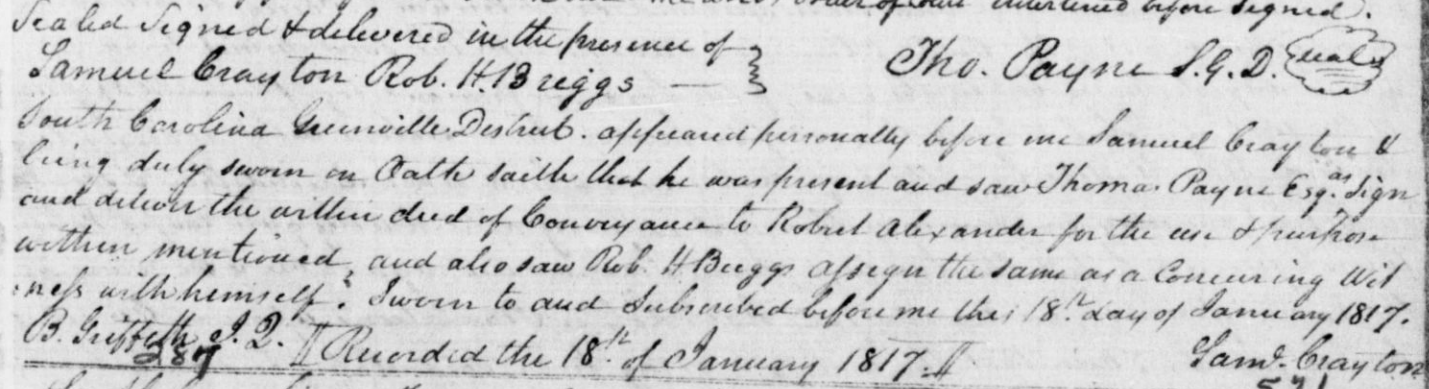 interlined before signed.
Sealed Signed & delivered in the presence of
Samuel Crayton Rob. H. Briggs Tho. Payne S. G. D. Seal
South Carolina Greenville District. appeared personally before me Samuel Crayton &
being duly sworn on Oath saith that he was present and saw Thomas Payne Esqr. as Sign
and deliver the within deed of Conveyance to Robert Alexander for the use & purpose
within mentioned, and also saw Rob. H Briggs assign the same as a Concuring Wit
ness with himself. Sworn to and Subscribed before me this 18th day of January 1817.
B. Griffeth J. Q. Recorded the 18th of January 1817. Saml. Crayton
287